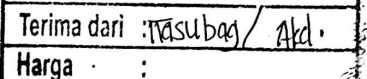 Terima dari : Kasubag / Akd.
Harga :